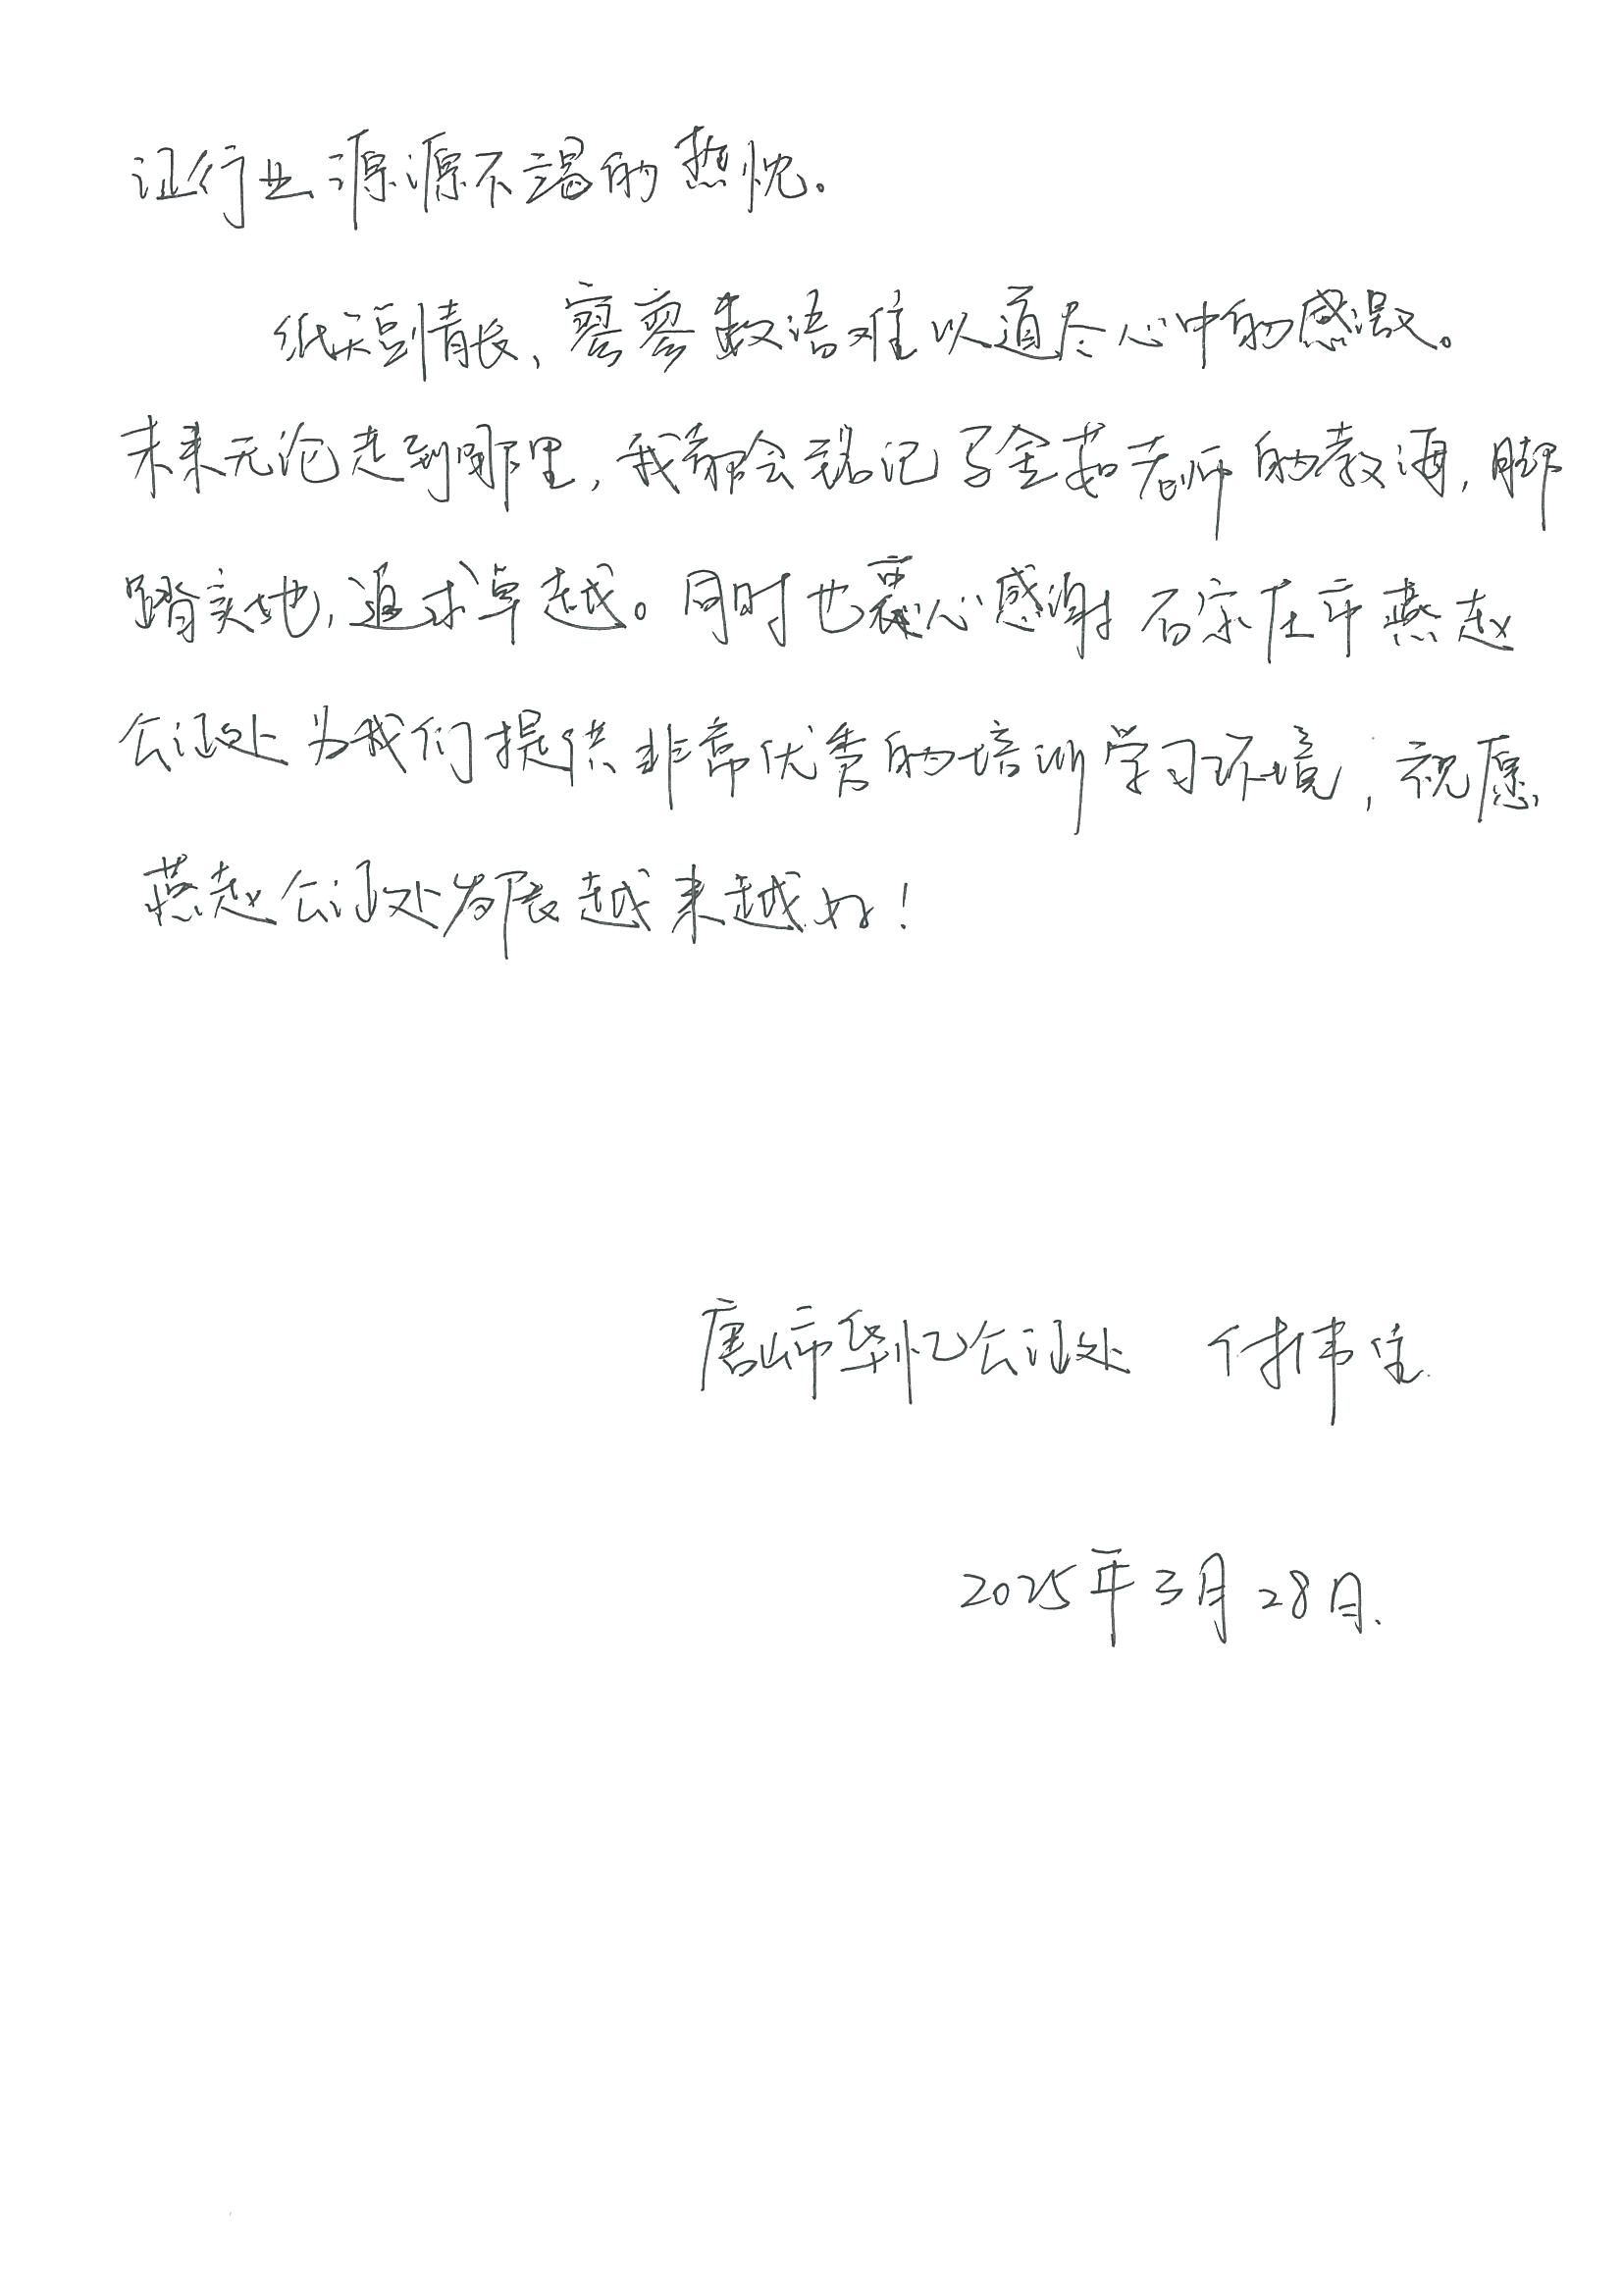 证行业源源不竭的热忱。
纸短情长，寥寥数语难以道尽心中的感激。
未来无论走到哪里，我都会铭记子金茹老师的教诲，脚
踏实地，追求卓越。同时也衷心感谢石家庄市燕赵
公证处为我们提供非常优秀的培训学习环境，祝愿
燕赵公证处发展越来越好！
唐山市华忆公证处 付伟
2025年3月28日.